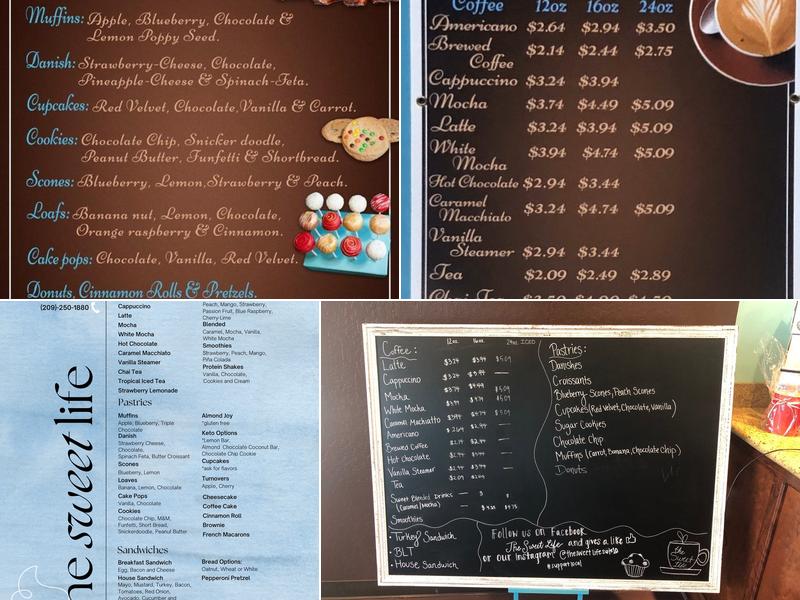 Muffins: Apple, Blueberry, Chocolate &
Lemon Poppy Seed.
Danish: Strawberry-Cheese, Chocolate,
Pineapple-Cheese & Spinach-Feta.
Cupcakes: Red Velvet, Chocolate,Vanilla & Carrot.
Cookies: Chocolate Chip, Snicker doodle,
Peanut Butter, Funfetti & Shortbread.
Scones: Blueberry, Lemon,Strawberry & Peach.
Loafs: Banana nut, Lemon, Chocolate,
Orange raspberry & Cinnamon.
Cake pops: Chocolate, Vanilla, Red Velvet.
Donuts, Cinnamon Rolls & Pretzels.
Coffee 12oz 16oz 24oz
Americano $2.64 $2.94 $3.50
Brewed $2.14 $2.44 $2.75
Coffee
Cappuccino $3.24 $3.94
Mocha $3.74 $4.49 $5.09
Latte $3.24 $3.94 $5.09
White $3.94 $4.74 $5.09
Mocha
Hot Chocolate $2.94 $3.44
Caramel $3.24 $4.74 $5.09
Macchiato
Vanilla
Steamer $2.94 $3.44
Tea $2.09 $2.49 $2.89
Chai Tea
(209)-250-1880
the sweet life
Cappuccino
Latte
Mocha
White Mocha
Hot Chocolate
Caramel Macchiato
Vanilla Steamer
Chai Tea
Tropical Iced Tea
Strawberry Lemonade
Peach, Mango, Strawberry,
Passion Fruit, Blue Raspberry,
Cherry-Lime
Blended
Caramel, Mocha, Vanilla,
White Mocha
Smoothies
Strawberry, Peach, Mango,
Piña Colada
Protein Shakes
Vanilla, Chocolate,
Cookies and Cream
Pastries
Muffins
Apple, Blueberry, Triple
Chocolate
Danish
Strawberry Cheese,
Chocolate,
Spinach Feta, Butter Croissant
Scones
Blueberry, Lemon
Loaves
Banana, Lemon, Chocolate
Cake Pops
Vanilla, Chocolate
Cookies
Chocolate Chip, M&M,
Funfetti, Short Bread,
Snickerdoodle, Peanut Butter
Almond Joy
*gluten free
Keto Options
*Lemon Bar,
Almond Chocolate Coconut Bar,
Chocolate Chip Cookie
Cupcakes
*ask for flavors
Turnovers
Apple, Cherry
Cheesecake
Coffee Cake
Cinnamon Roll
Brownie
French Macarons
Sandwiches
Breakfast Sandwich
Egg, Bacon and Cheese
House Sandwich
Mayo, Mustard, Turkey, Bacon,
Tomatoes, Red Onion,
Avocado, Cucumber and
Bread Options:
Oatnut, Wheat or White
Pepperoni Pretzel
Coffee: 12oz. 16oz. 24oz. ICED
Latte $3.24 $3.94 $5.09
Cappuccino
Mocha
White Mocha
Caramel Machiatto
Americano
Brewed Coffee
Hot Chocolate
Vanilla Steamer
Tea
Sweet Blended Drinks
(Caramel/Mocha)
Smoothies
• Turkey Sandwich
• BLT
• House Sandwich
Pastries:
Danishes
Croissants
Blueberry Scones, Peach Scones
Cupcakes (Red Velvet, Chocolate, Vanilla)
Sugar Cookies
Chocolate Chip
Muffins (Carrot, Banana, Chocolate Chip)
Donuts
Follow us on Facebook
The Sweet Life and give a like
or our Instagram!
#supportlocal
the Sweet Life